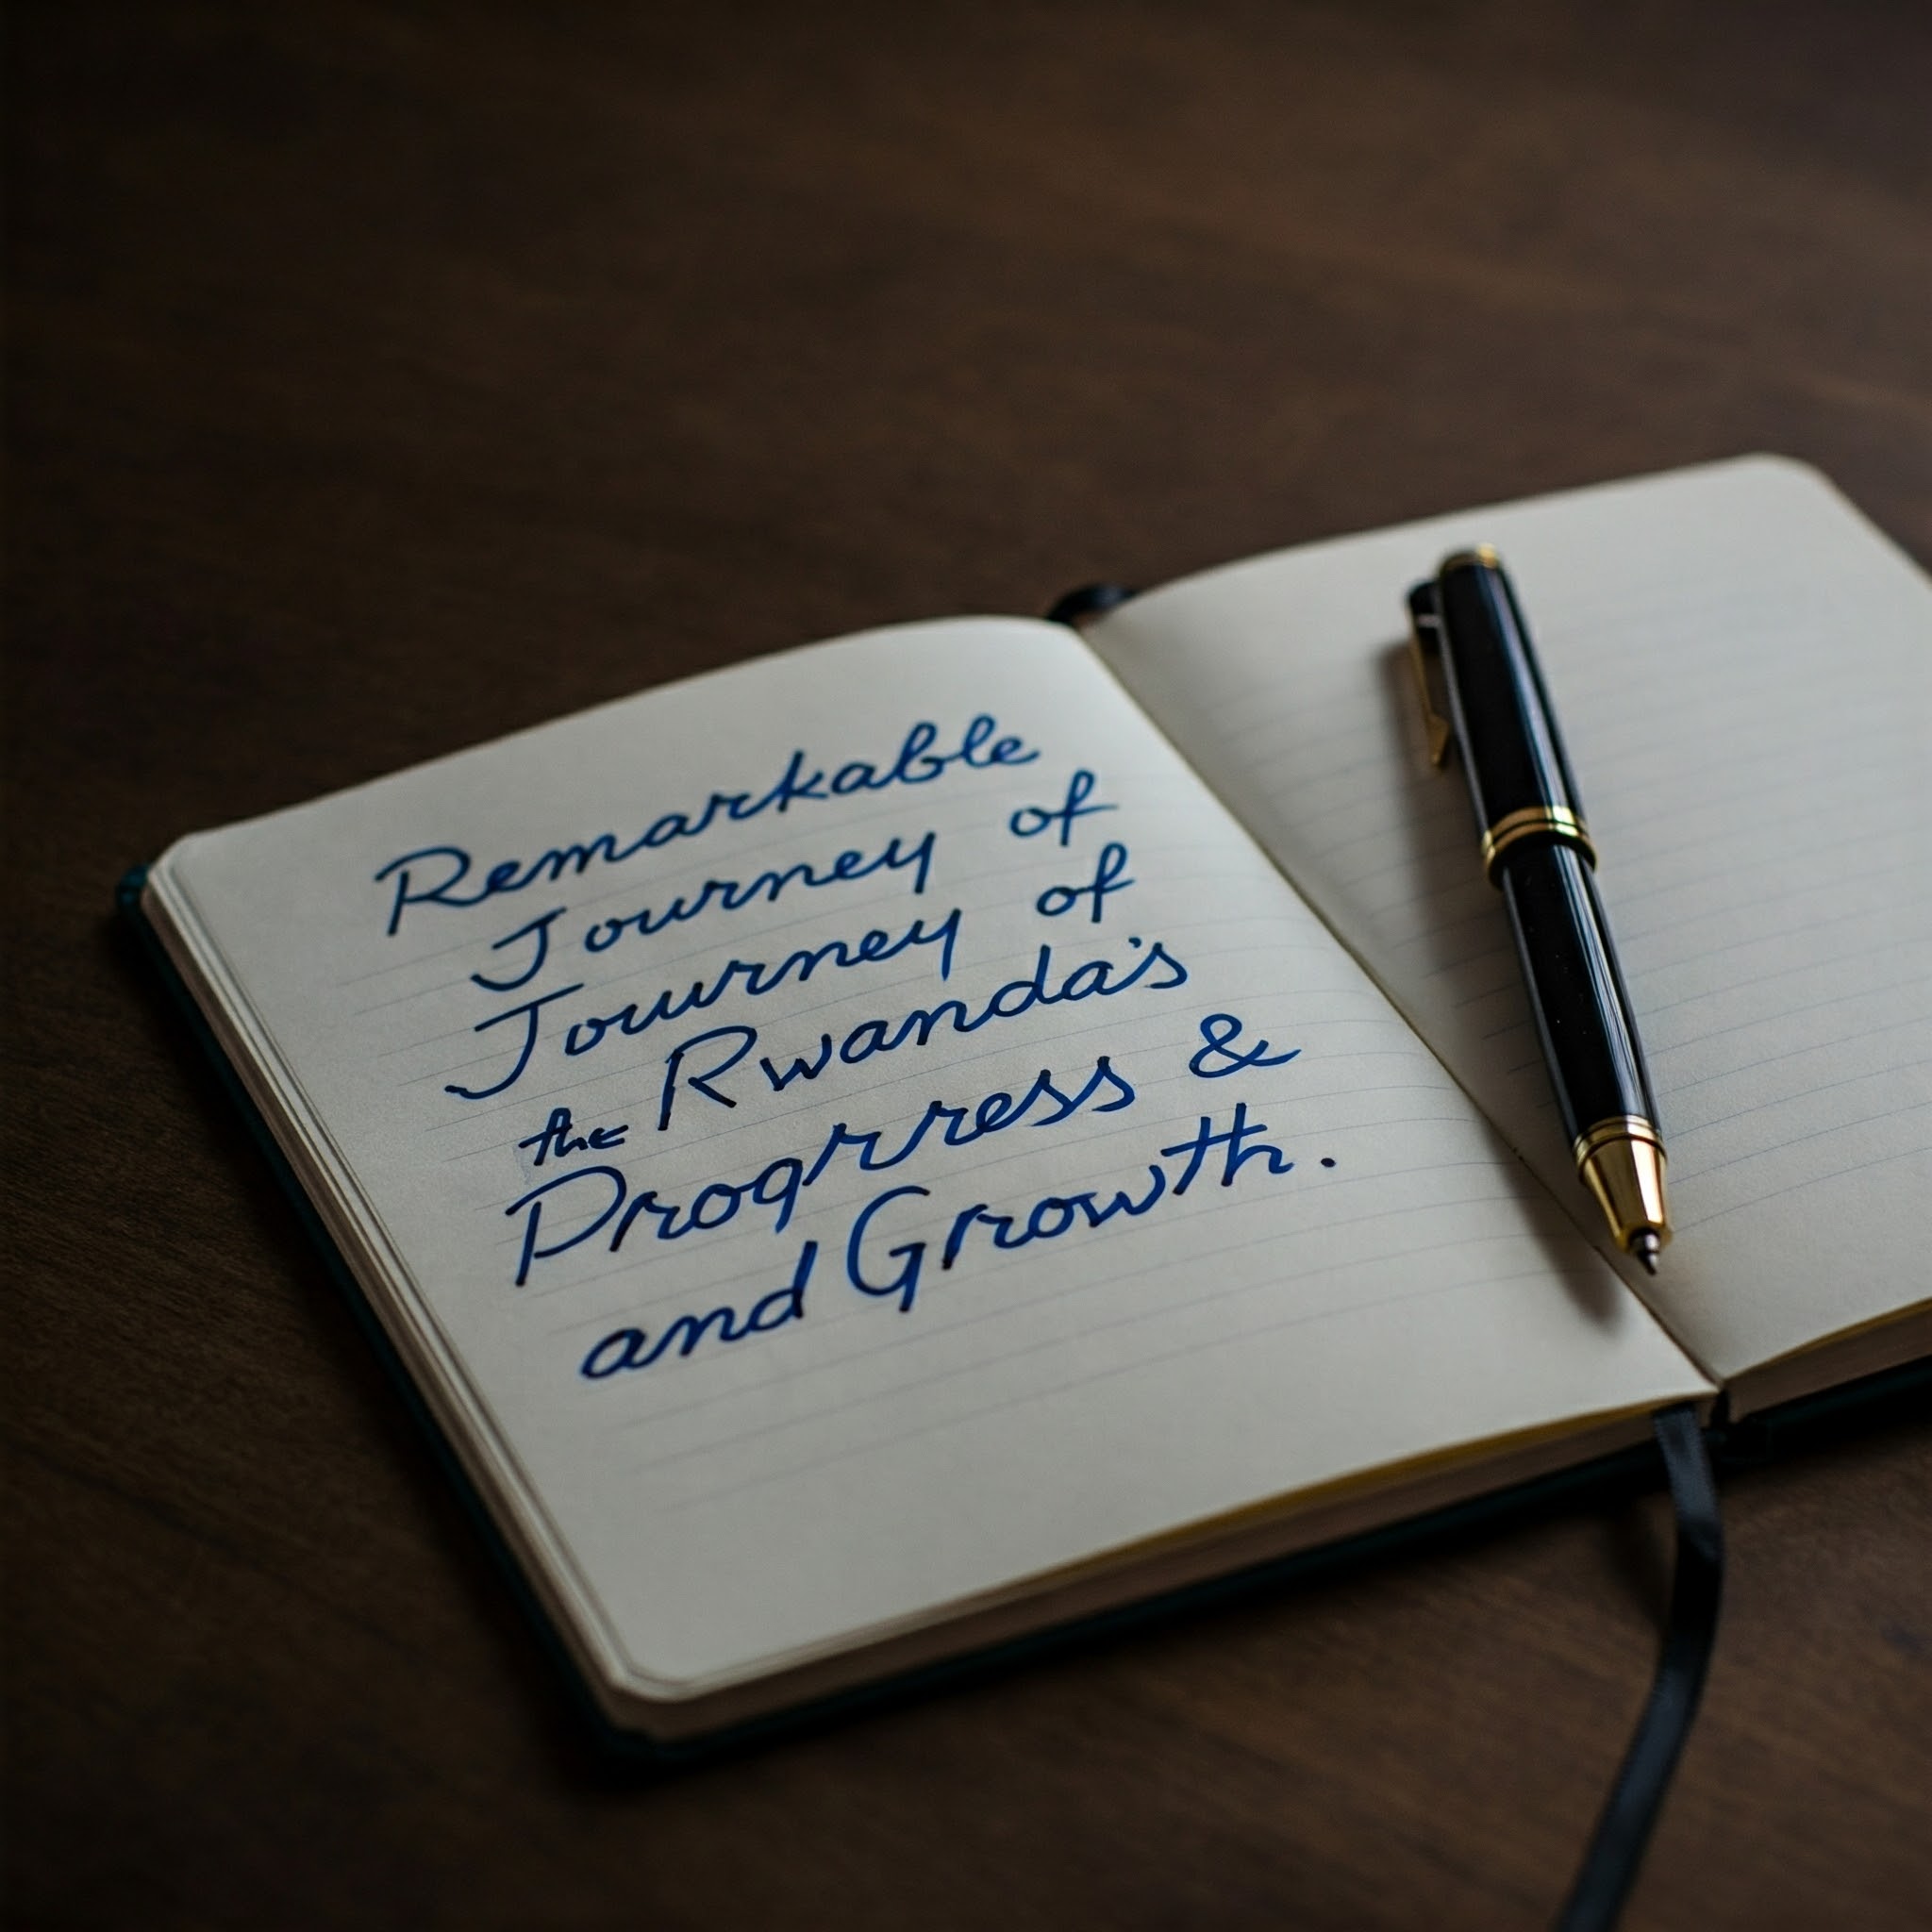 Remarkable
Journey of
Journey of
the Rwanda's
Progrress &
and Growth.